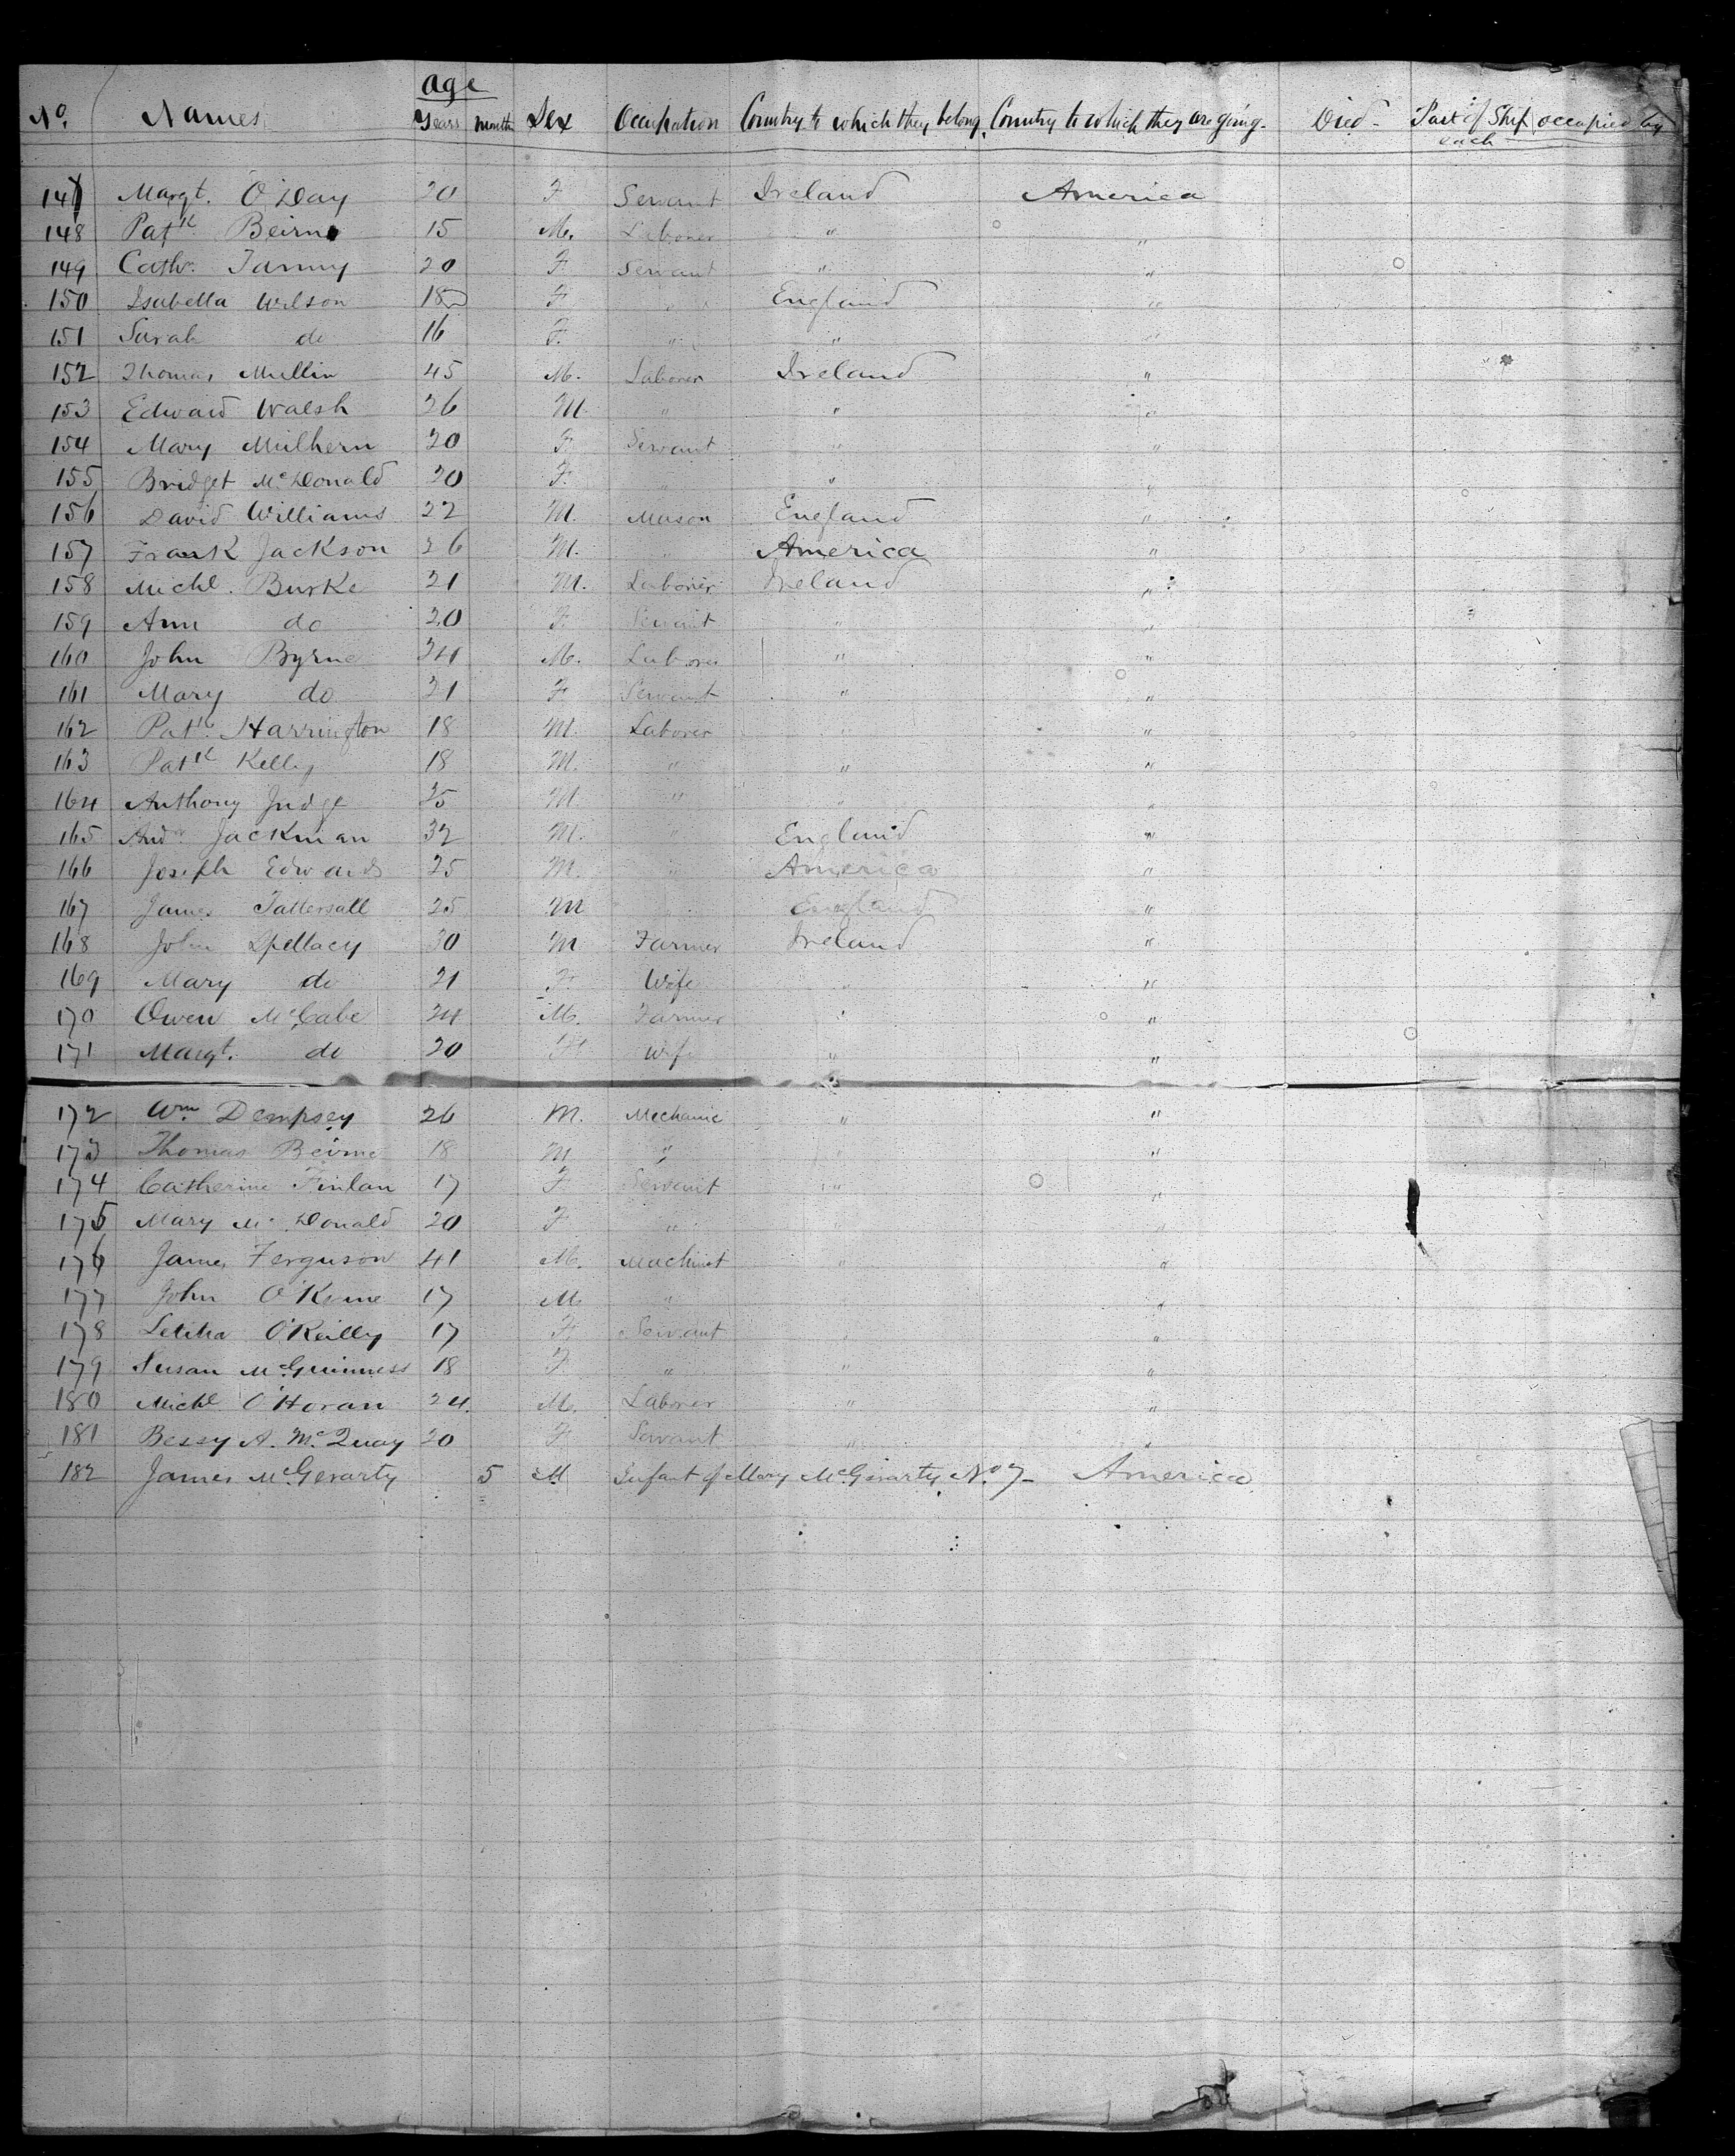 Age
No. Names Years Months Sex Occupation Country to which they belong. Country to which they are going. Died Part of Ship occupied by
each
147 Margt. O'Day 20 F Servant Ireland America
148 Patk Beirne 15 M. Laborer " "
149 Cathe. 20 F Servant " "
150 Isabella Wilson 18 F " England "
151 Sarah do 16 F. " " "
152 Thomas Mullin 45 M. Laborer Ireland "
153 Edward Walsh 26 M. " " "
154 Mary Mulhern 20 F Servant " "
155 Bridget McDonald 20 F. " " "
156 David Williams 22 M. Mason England "
157 Frank Jackson 26 M. " America "
158 Michl. Burke 21 M. Laborer Ireland "
159 Ann do 20 F Servant " "
160 John Byrne 24 M. Laborer " "
161 Mary do 21 F Servant " "
162 Patk. Harrington 18 M. Laborer " "
163 Patk Kelly 18 M. " " "
164 Anthony Judge 25 M " " "
165 Andw. Jackman 32 M. " England "
166 Joseph Edwards 25 M. " America "
167 James Tattersall 25 M " England "
168 John Spellacy 30 M Farmer Ireland "
169 Mary do 21 F Wife " "
170 Owen McCabe 24 M. Farmer " "
171 Margt. do 20 F Wife " "
172 Wm Dempsey 26 M. Mechanic " "
173 Thomas Beirne 18 M " " "
174 Catherine Finlan 17 F Servant " "
175 Mary McDonald 20 F " " "
176 James Ferguson 41 M. Machinist " "
177 John 17 M " " "
178 Letitia O'Reilly 17 F Servant " "
179 Susan McGuinness 18 F " " "
180 Michl O'Horan 24. M. Laborer " "
181 Bessy A. McQuay 20 F Servant " "
182 James McGerarty 5 M Infant of Mary McGerarty No. 7 - America